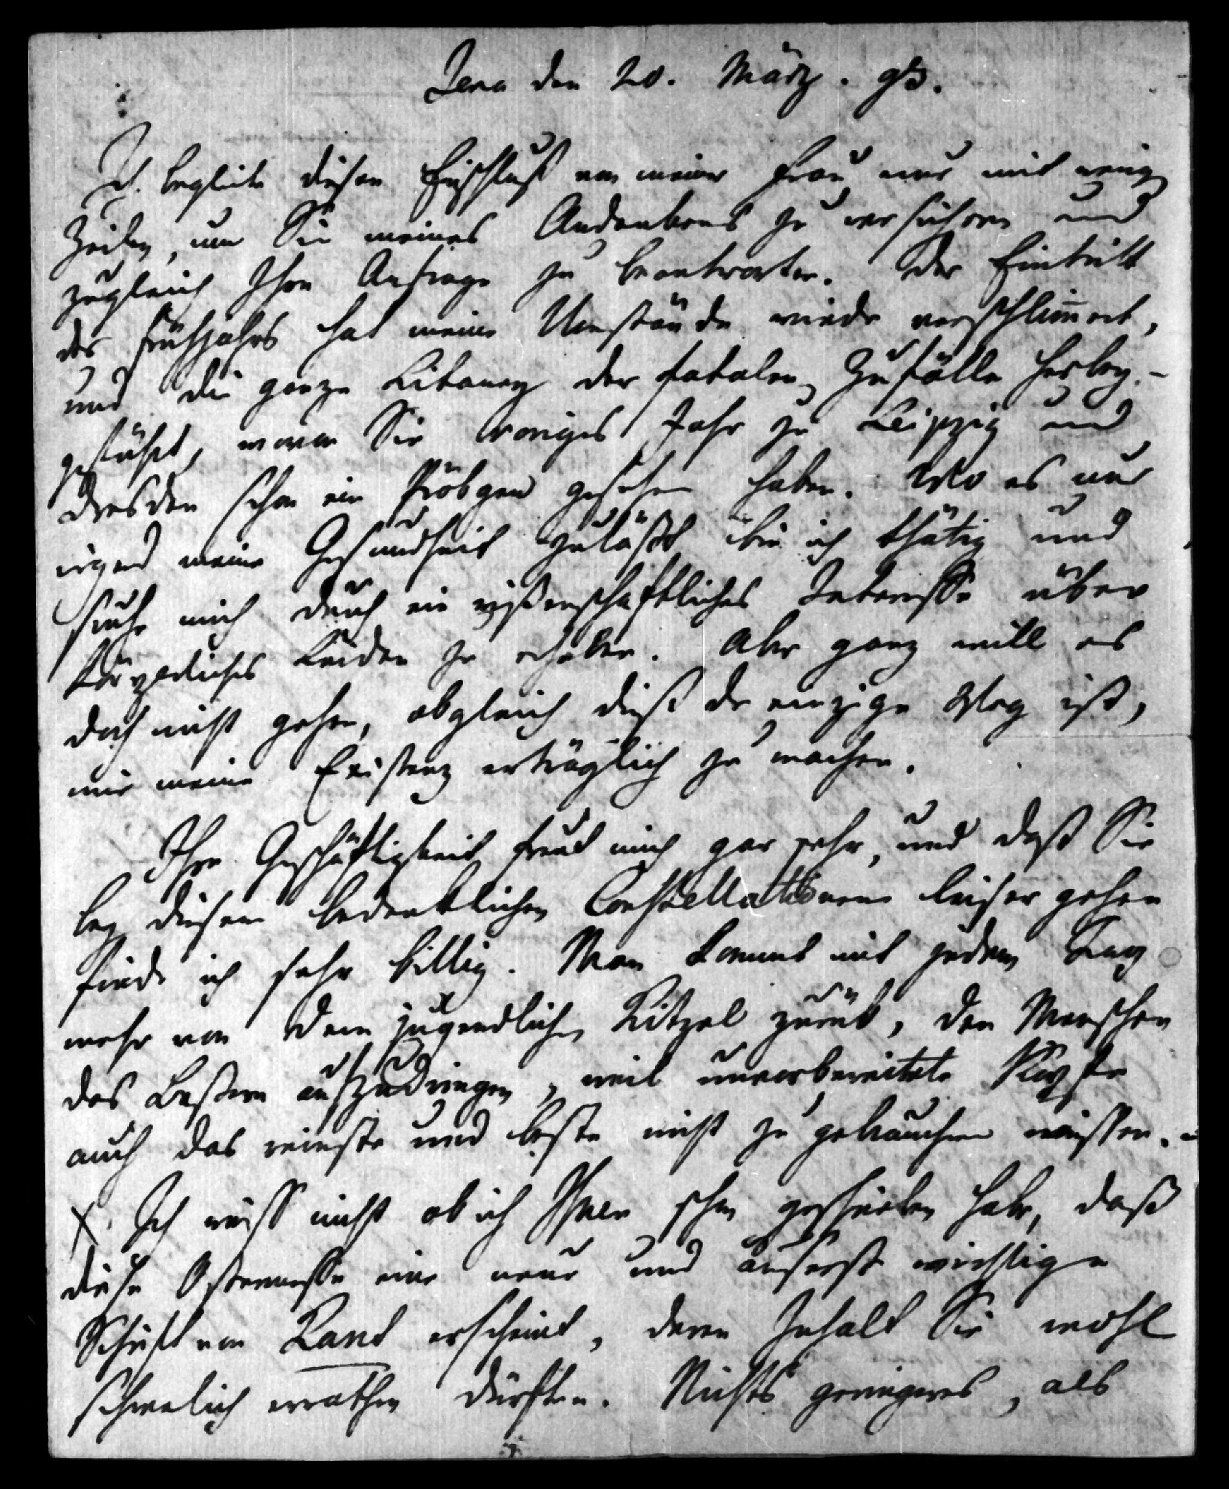 Jena den 20. März. 93.
Ich begleite diesen Einschluß von meiner Frau nur mit wenig
Zeilen, um Sie meines Andenkens zu versichern und
zugleich Ihre Anfrage zu beantworten. Der Eintritt
des Frühjahrs hat meine Umstände wieder verschlimmert,
und die ganze Litaney der fatalen Zufälle herbey-
geführt, wovon Sie voriges Jahr zu Leipzig und
Dresden schon ein Pröbgen gesehen haben. Wo es nur
irgend meine Gesundheit zuläßt bin ich thätig und
suche mich durch ein wißenschaftliches Interesse über
körperliches Leiden zu erheben. Aber ganz will es
doch nicht gehen, obgleich dieß der einzige Weg ist,
mir meine Existenz erträglich zu machen.
Ihre Geschäftigkeit freut mich gar sehr, und daß Sie
bey diesen bedenklichen Constellationen leiser gehen
finde ich sehr billig. Man kommt mit jedem Tag
mehr von dem jugendlichen Kitzel zurük, den Menschen
das Beßere aufzudringen, weil unvorbereitete Köpfe
auch das reinste und beste nicht zu gebrauchen wissen. -
Ich weiss nicht ob ich Ihnen schon geschrieben habe, daß
diese Ostermesse eine neue und äuserst wichtige
Schrift von Kant erscheint, deren Inhalt Sie wohl
schwerlich errathen dürften. Nichts geringeres, als